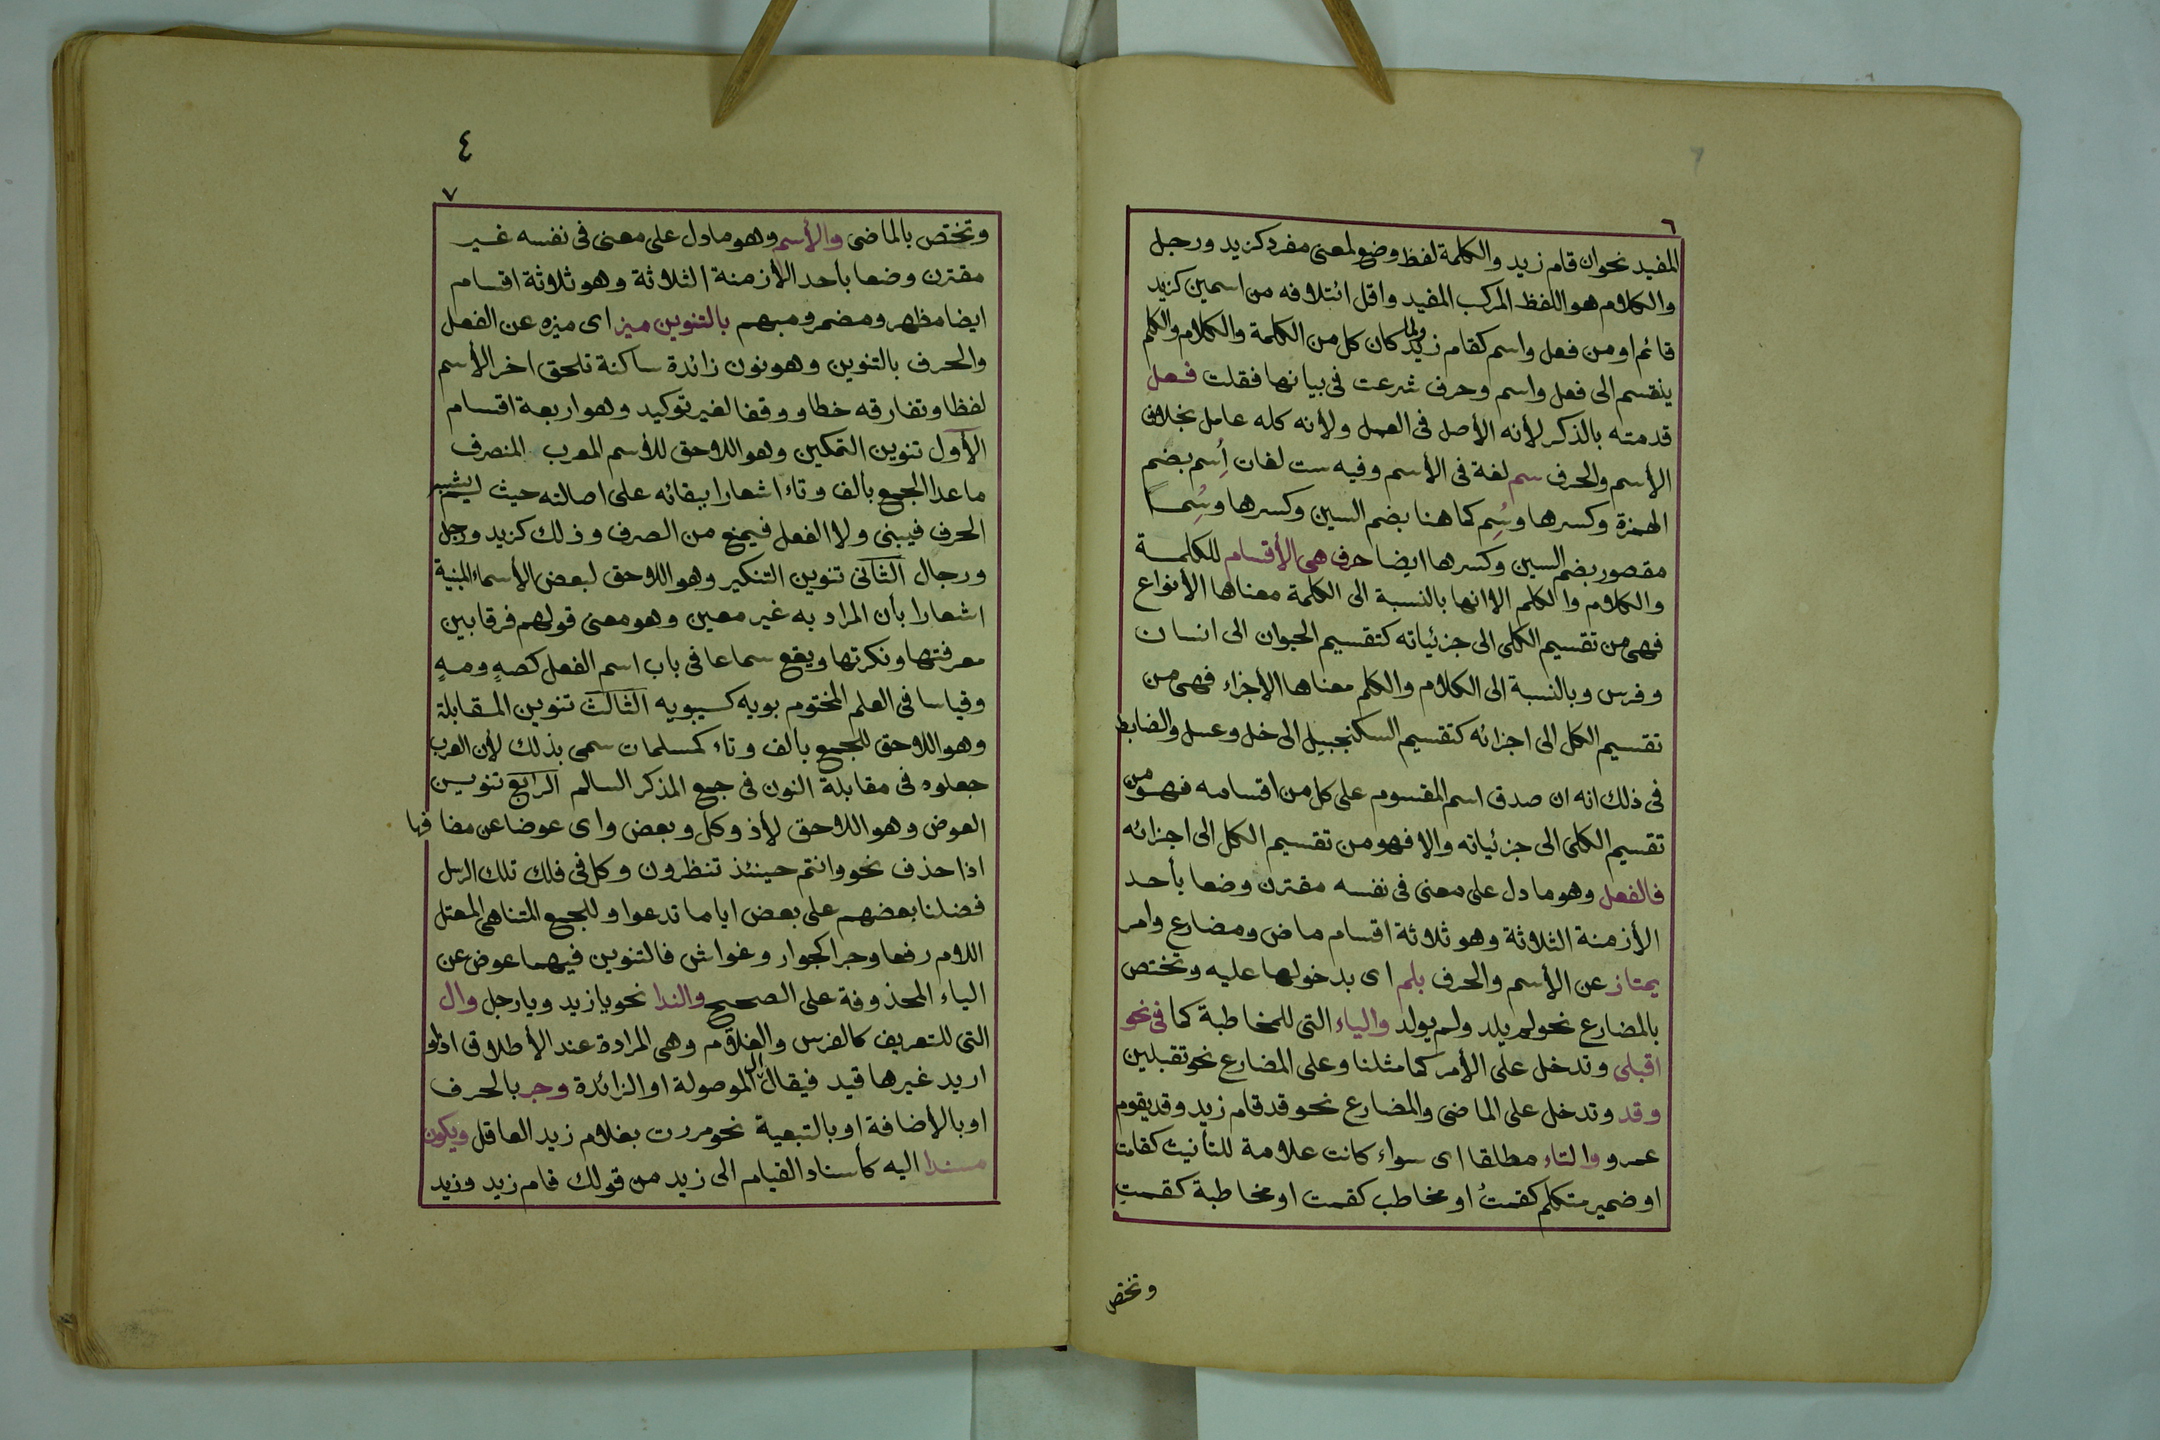 ٦
المفيد نحو ان قام زيد والكلمة لفظ وضع لمعنى مفرد كزيد ورجل
والكلام هو اللفظ المركب المفيد واقل ائتلافه من اسمين كزيد
قائم او من فعل واسم كقام زيد ولما كان كل من الكلمة والكلام والكلم
ينقسم الى فعل واسم وحرف شرعت فى بيانها فقلت فعل
قدمته بالذكر لأنه الأصل فى العمل ولأنه كله عامل بخلاف
الأسم والحرف سم لغة فى الأسم وفيه ست لغات اُِسم بضم
الهمزة وكسرها وسُِم كما هنا بضم السين وكسرها وسُِمــا
مقصور بضم السين وكسرها ايضا حرف هى الأقسام للكلمــة
والكلام والكلم الا انها بالنسبة الى الكلمة معناها الأنواع
فهى من تقسيم الكلى الى جزئياته كتقسيم الحيوان الى انسان
وفرس وبالنسبة الى الكلام والكلم معناها الاجزاء فهى من
تقسيم الكل الى اجزائه كتقسيم السكنجبيل الى خل وعسل والضابط
فى ذلك انه ان صدق اسم المقسوم على كل من اقسامه فهو من
تقسيم الكلى الى جزئياته والا فهو من تقسيم الكل الى اجزائه
فالفعل وهو ما دل على معنى فى نفسه مقترن وضعا بأحد
الأزمنة الثلاثة وهو ثلاثة اقسام ماض ومضارع وامر
يمتاز عن الأسم والحرف بلم اى بدخولها عليه وتختص
بالمضارع نحو لم يلد ولم يولد والياء التى للمخاطبة كما فى نحو
اقبلى وتدخل على الأمر كما مثلنا وعلى المضارع نحو تقبلين
وقد وتدخل على الماضى والمضارع نحو قد قام زيد وقد يقوم
عمرو والتاء مطلقا اى سواء كانت علامة للتأنيث كقامت
او ضمير متكلم كقمتُ او مخاطب كقمت او مخاطبة كقمتِ
وتختص
٤
٧
وتختص بالماضى والأسم وهو ما دل على معنى فى نفسه غــير
مقترن وضعا بأحد الأزمنة الثلاثة وهو ثلاثة اقسام
ايضا مظهر ومضمر ومبهم بالتنوين ميز اى ميزه عن الفعل
والحرف بالتنوين وهو نون زائدة ساكنة تلحق اخر الأسم
لفظا وتفارقه خطا ووقفا لغير توكيد وهو اربعة اقسام
الأول تنوين التمكين وهو اللاحق للأسم المعرب المنصرف
ما عدا الجمع بألف وتاء اشعارا ببقائه على اصالته حيث لم يشبه
الحرف فيبنى ولا الفعل فيمنع من الصرف وذلك كزيد ورجل
ورجال الثانى تنوين التنكير وهو اللاحق لبعض الأسماء المبنية
اشعارا بأن المراد به غير معين وهو معنى قولهم فرقا بين
معرفتها ونكرتها ويقع سماعا فى باب اسم الفعل كصهٍ ومهٍ
وقياسا فى العلم المختوم بويه كسيبويه الثالث تنوين المقابلة
وهو اللاحق للجمع بألف وتاء كمسلمات سمى بذلك لأن العرب
جعلوه فى مقابلة النون فى جمع المذكر السالم الرابع تنوين
العوض وهو اللاحق لأذ وكل وبعض واى عوضا عن مضافها
اذا حذف نحو وانتم حينئذ تنظرون وكل فى فلك تلك الرسل
فضلنا بعضهم على بعض اياما تدعوا وللجمع المتناهى المعتل
اللام رفعا وجرا كجوار وغواش فالتنوين فيهما عوض عن
الياء المحذوفة على الصحيح والندا نحو يا زيد ويا رجل وال
التى للتعريف كالفرس والغلام وهى المرادة عند الأطلاق اذ لو
اريد غيرها قيد فيقال ال الموصولة او الزائدة وجر بالحرف
او بالأضافة او بالتبعية نحو مررت بغلام زيد العاقل ويكون
مسندا اليه كأسناد القيام الى زيد من قولك قام زيد وزيد